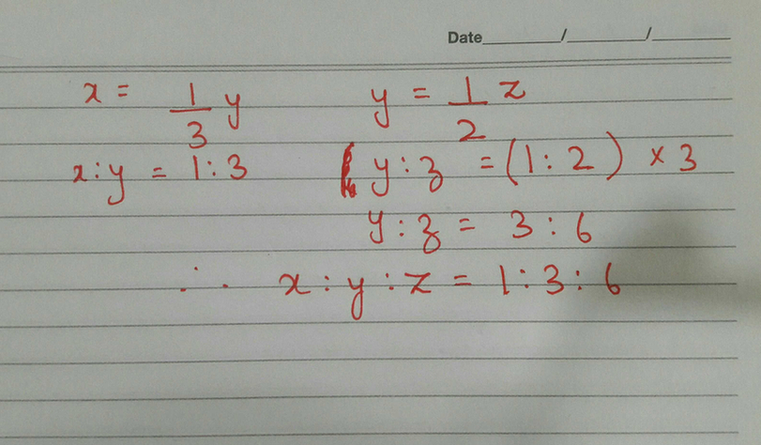 Date___/___/___
x = 1/3 y y = 1/2 z
x : y = 1 : 3 y : z = (1 : 2) × 3
y : z = 3 : 6
∴ x : y : z = 1 : 3 : 6